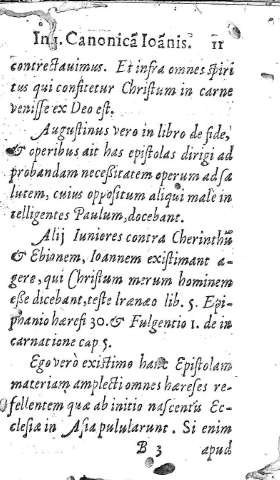 In I. Canonicā Ioānis. 11
contrectauimus. Et infra omnes spiri
tus qui confitetur Christum in carne
venisse ex Deo est.
Augustinus vero in libro de fide,
& operibus ait has epistolas dirigi ad
probandam necessitatem operum ad sa
lutem, cuius oppositum aliqui male in
telligentes Paulum, docebant.
Alij Iuniores contra Cherinthū
& Ebionem, Ioannem existimant a-
gere, qui Christum merum hominem
esse dicebant, teste Irænæo lib. 5. Epi-
phanio hæresi 30. & Fulgentio 1. de in
carnatione cap 5.
Ego verò existimo hanc Epistolam
materiam amplecti omnes hæreses re-
fellentem quæ ab initio nascentis Ec-
clesiæ in Asia pulularunt. Si enim
B 3 apud